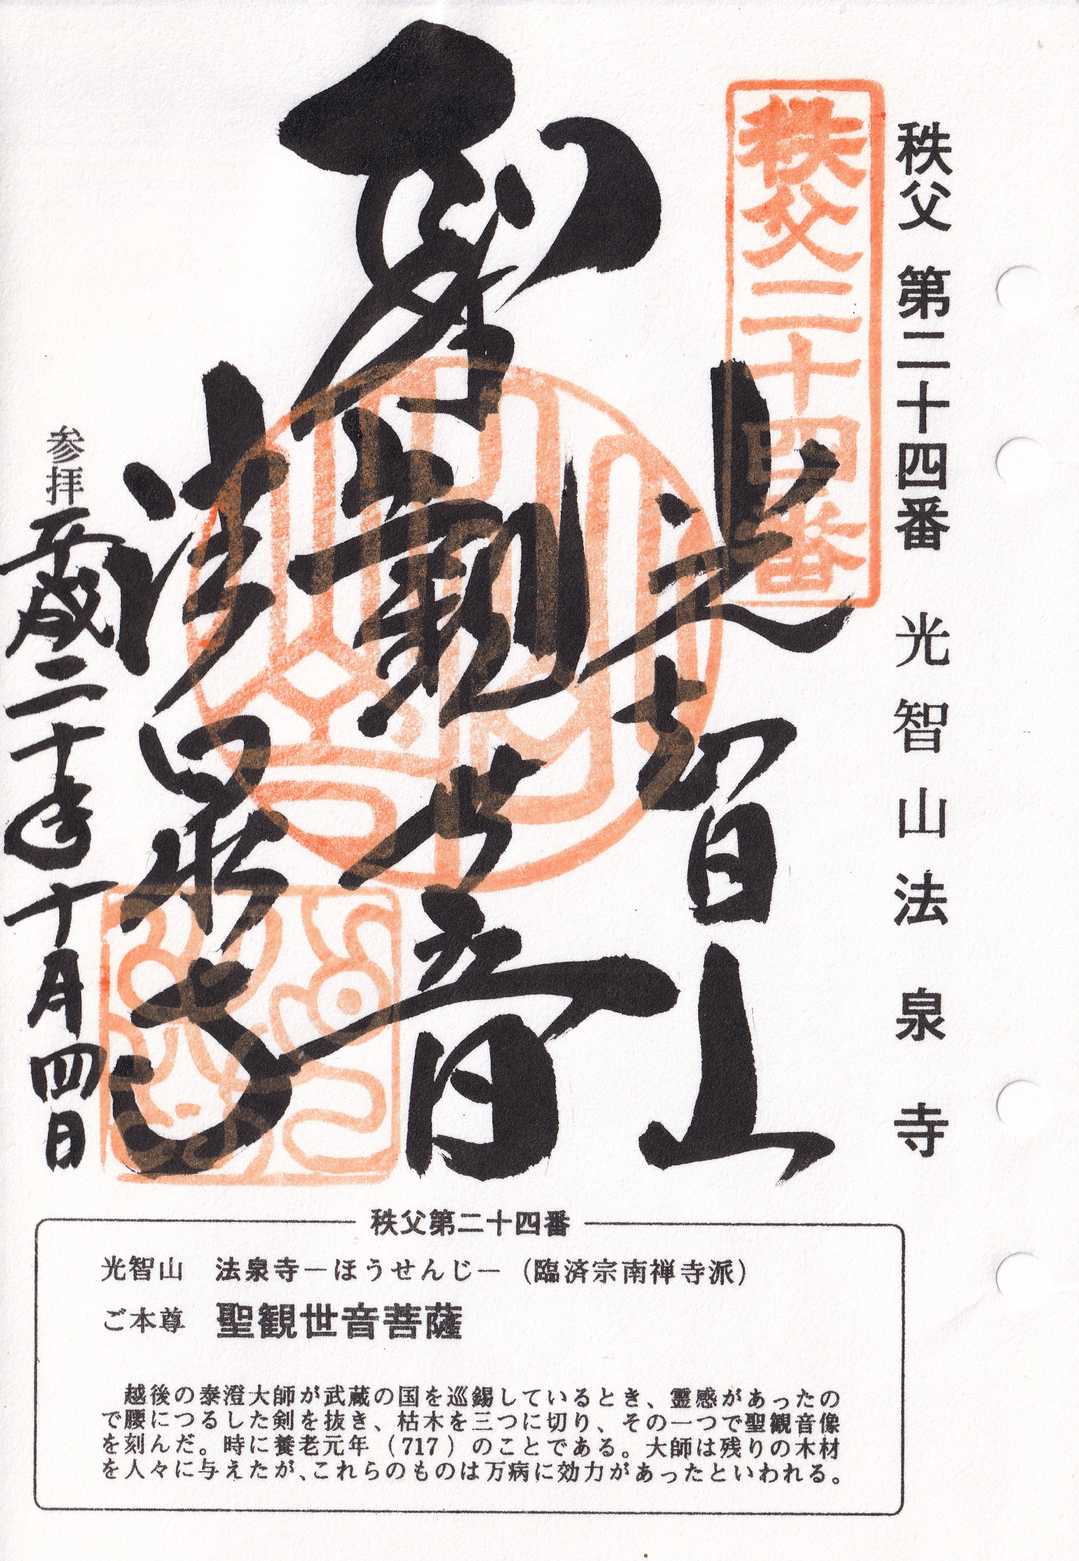 秩父 第二十四番 光智山法泉寺
秩父二十四番
光智山
聖観世音
法泉寺
参拝平成二十年十月四日
秩父第二十四番
光智山 法泉寺－ほうせんじ－（臨済宗南禅寺派）
ご本尊 聖観世音菩薩
越後の泰澄大師が武蔵の国を巡錫しているとき、霊感があったの
で腰につるした剣を抜き、枯木を三つに切り、その一つで聖観音像
を刻んだ。時に養老元年（717）のことである。大師は残りの木材
を人々に与えたが、これらのものは万病に効力があったといわれる。